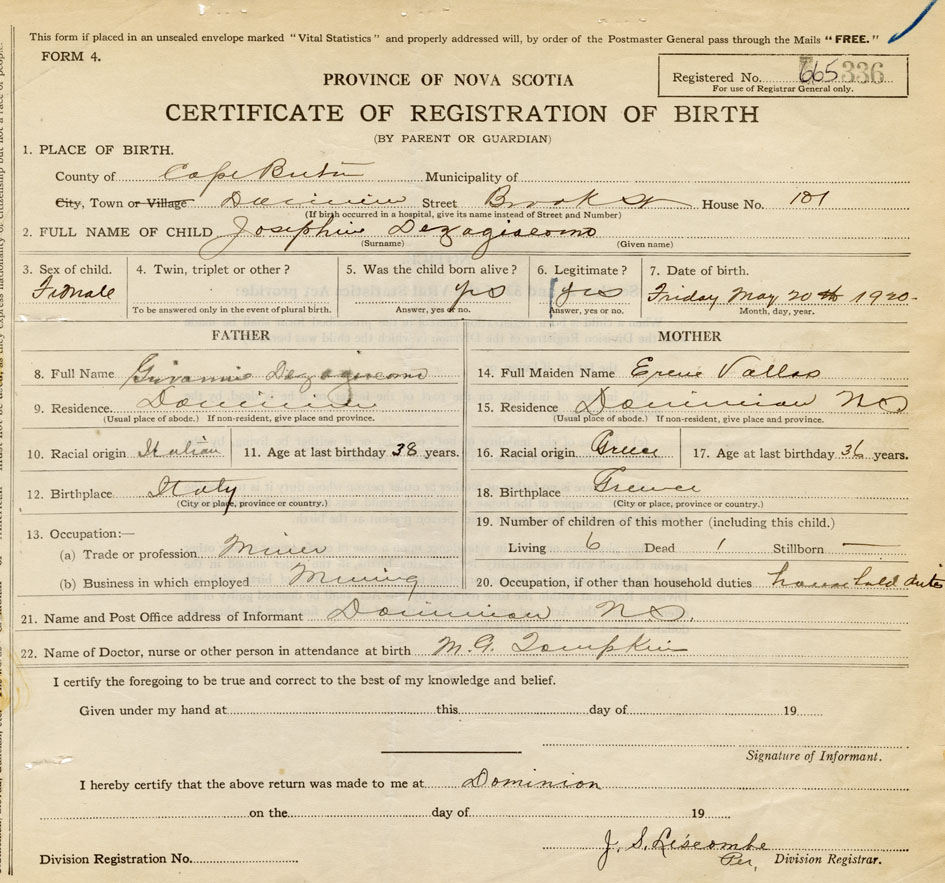 This form if placed in an unsealed envelope marked "Vital Statistics" and properly addressed will, by order of the Postmaster General pass through the Mails "FREE."
FORM 4.
PROVINCE OF NOVA SCOTIA
Registered No. 665 336
For use of Registrar General only.
CERTIFICATE OF REGISTRATION OF BIRTH
(BY PARENT OR GUARDIAN)
1. PLACE OF BIRTH.
County of Cape Breton Municipality of
City, Town or Village Dominion Street Brook St House No. 181
(If birth occurred in a hospital, give its name instead of Street and Number)
2. FULL NAME OF CHILD Josephine Dezagiacomo
(Surname) (Given name)
3. Sex of child. 4. Twin, triplet or other? 5. Was the child born alive? 6. Legitimate? 7. Date of birth.
Female yes yes Friday May 20th 1920.
To be answered only in the event of plural birth. Answer, yes or no. Answer, yes or no. Month, day, year.
FATHER MOTHER
8. Full Name Giovannie Dezagiacomo 14. Full Maiden Name Erene Vallas
9. Residence. Dominion 15. Residence Dominion NS
(Usual place of abode.) If non-resident, give place and province. (Usual place of abode.) If non-resident, give place and province.
10. Racial origin Italian 11. Age at last birthday 38 years. 16. Racial origin Greece 17. Age at last birthday 36 years.
12. Birthplace Italy 18. Birthplace Greece
(City or place, province or country.) (City or place, province or country.)
13. Occupation:— 19. Number of children of this mother (including this child.)
(a) Trade or profession Miner Living 6 Dead 1 Stillborn —
(b) Business in which employed Mining 20. Occupation, if other than household duties household duties
21. Name and Post Office address of Informant Dominion NS.
22. Name of Doctor, nurse or other person in attendance at birth M.G. Tompkins
I certify the foregoing to be true and correct to the best of my knowledge and belief.
Given under my hand at this day of 19
Signature of Informant.
I hereby certify that the above return was made to me at Dominion
on the day of 19
J. S. Liscombe
Division Registration No. Per, Division Registrar.